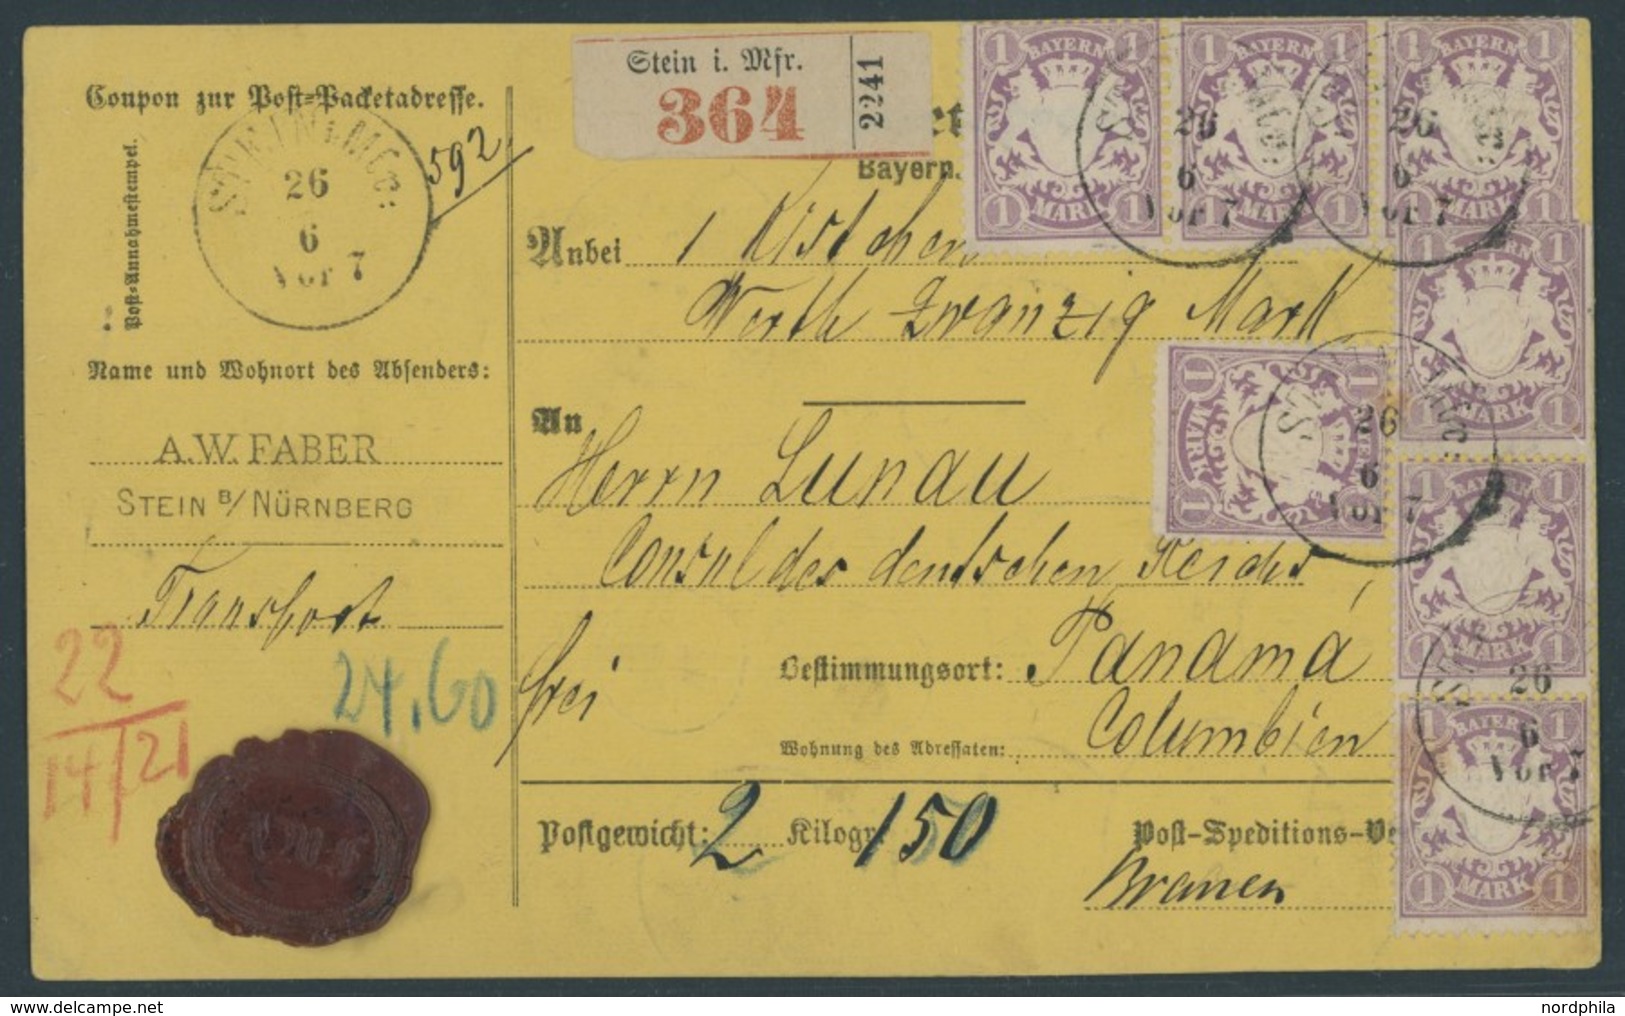 Coupon zur Post-Packetadresse.
Post-Annahmestempel.
26
6
Vor 7
592
Name und Wohnort des Absenders:
A.W. FABER
STEIN B/ NÜRNBERG
Transport
22
14/21
24.60
Stein i. Mfr.
364
2241
Bayern.
Anbei 1 Kistchen
Werth Zwanzig Mark
An
Herrn Lunau
Consul des deutschen Reichs,
frei
Bestimmungsort: Panamá
Wohnung des Adressaten: Columbien
Postgewicht: 2 Kilogr. 150
Post-Speditions-Ve
Bremen
1 BAYERN 1
1 MARK 1
1 BAYERN 1
1 MARK 1
1 BAYERN 1
1 MARK 1
26
6
Vor 7
26
6
Vor 7
1 1
1 MARK 1
1 1
MARK
1
26
6
Vor 7
1 BAYERN 1
1 MARK 1
26
6
Vor 7
1 BAYERN 1
1 MARK 1
www.delcampe.net
nordphila